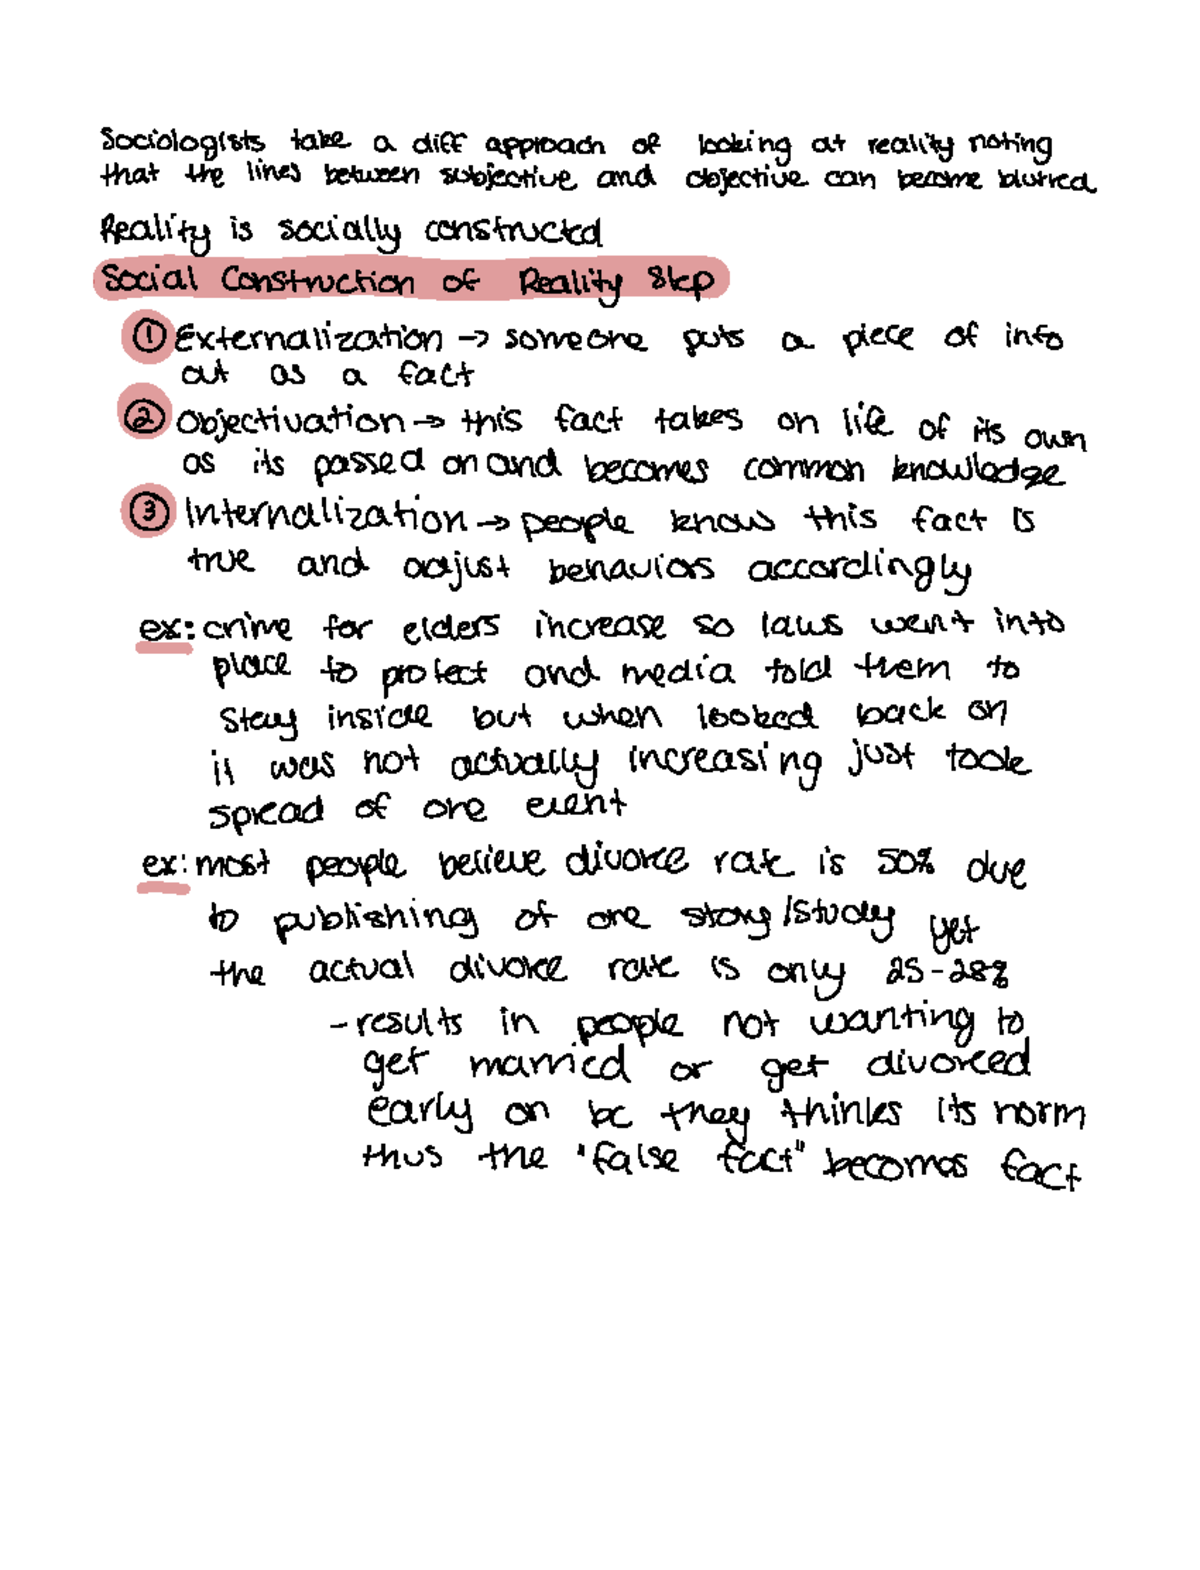 Sociologists take a diff approach of looking at reality noting
that the lines between subjective and objective can become blurred
Reality is socially constructed
Social Construction of Reality Step
① Externalization → someone puts a piece of info
out as a fact
② Objectivation → this fact takes on life of its own
as its passed on and becomes common knowledge
③ Internalization → people know this fact is
true and adjust behaviors accordingly
ex: crime for elders increase so laws went into
place to protect and media told them to
stay inside but when looked back on
it was not actually increasing just took
spread of one event
ex: most people believe divorce rate is 50% due
to publishing of one story/study yet
the actual divorce rate is only 25-28%
- results in people not wanting to
get married or get divorced
early on bc they thinks its norm
thus the "false fact" becomes fact